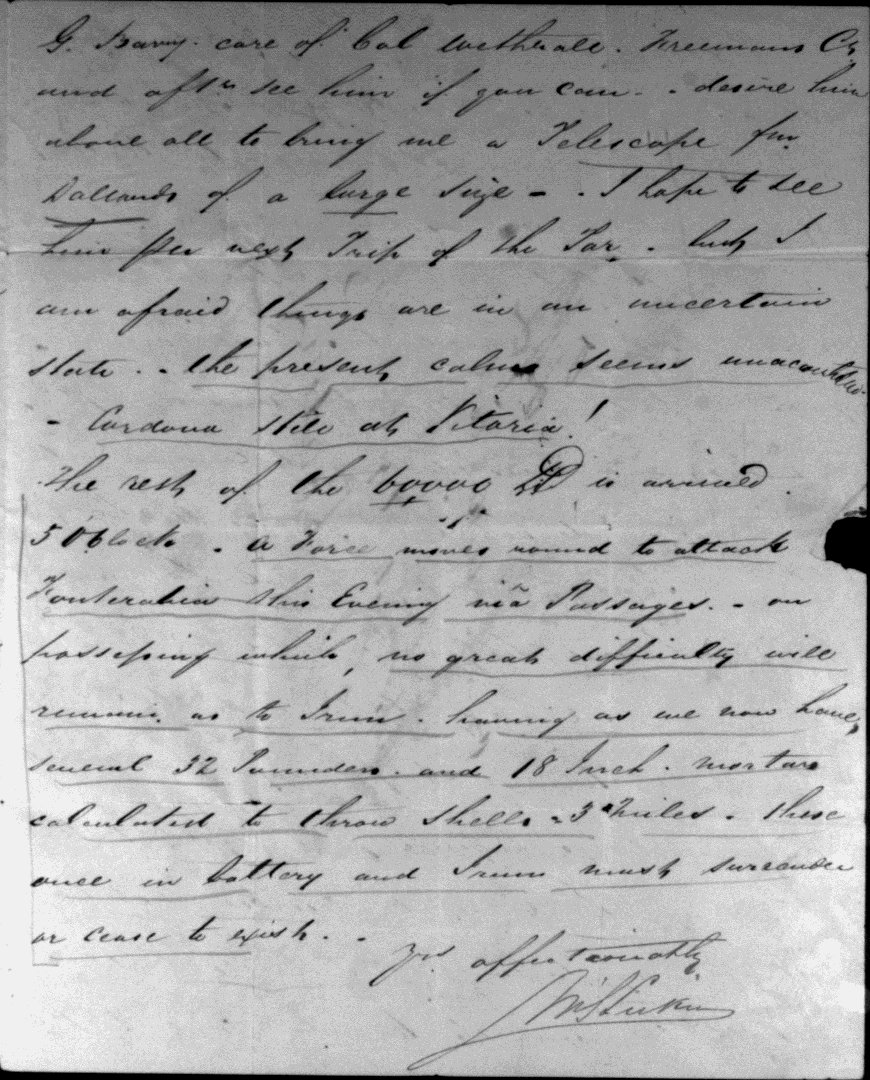 G. Harvy. care of Col Wetherall. Freemans Ct
and aftrs see him if you can - . desire him
above all to bring me a Telescope fm.
Dallands of a large size - . I hope to see
him per next Trip of the Tar. - but I
am afraid things are in an uncertain
state . - the present calm seems
- Cordova still at Vitoria!
The rest of the 60000 is arrived.
5 OClock . a Force moves round to attack
Fonterabia this Evening viã Passages. - on
possessing which, no great difficulty will
remain. as to Irun . having as we now have,
several 32 Pounders. and 18 Inch. mortars
calculated to throw shells 3 miles. these
once in battery and Irun must surrender
or cease to exist. -
yrs affectionately